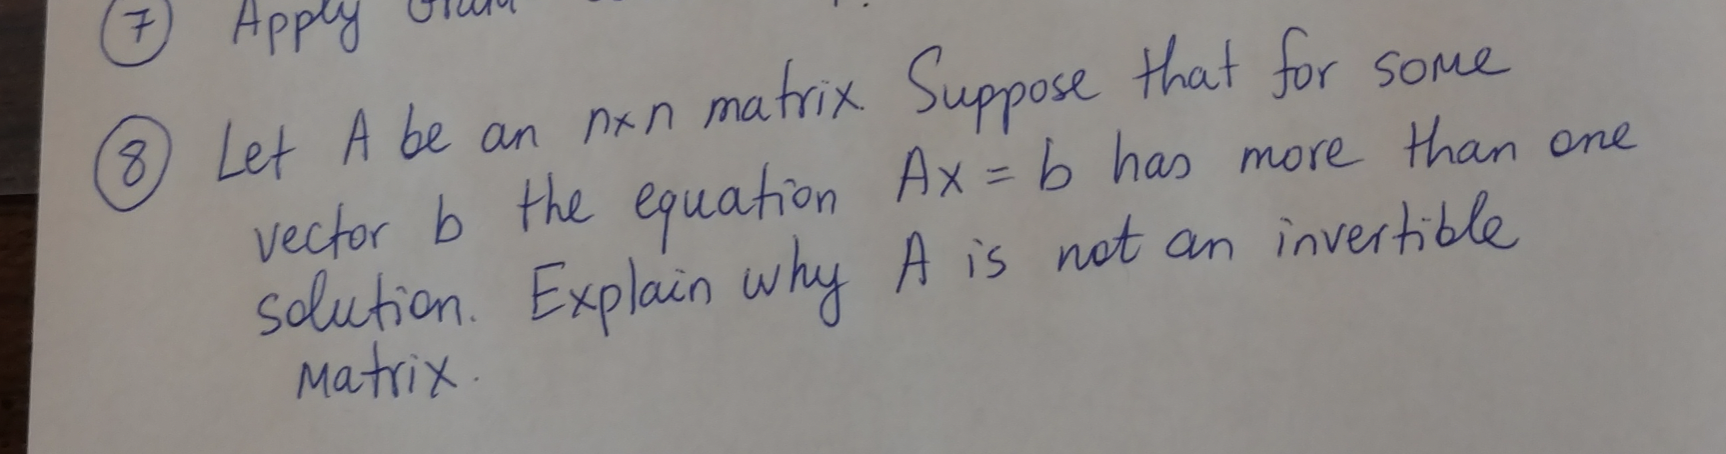 7 Apply
8 Let A be an n×n matrix. Suppose that for some
vector b the equation Ax = b has more than one
solution. Explain why A is not an invertible
matrix.